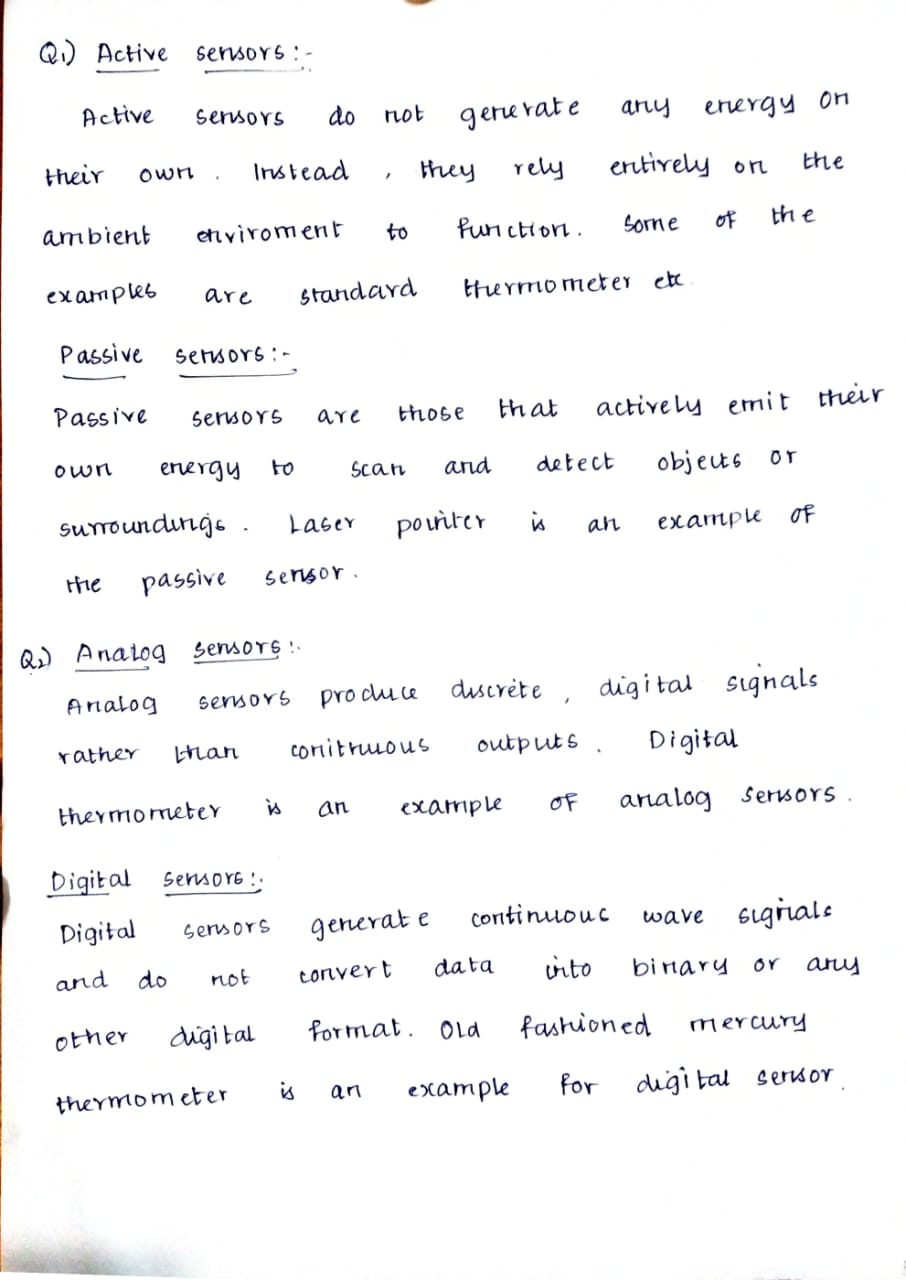 Q1) Active sensors :-
Active sensors do not generate any energy on
their own . Instead , they rely entirely on the
ambient enviroment to function . Some of the
examples are standard thermometer etc
Passive sensors :-
Passive sensors are those that actively emit their
own energy to scan and detect objects or
surroundings . Laser pointer is an example of
the passive sensor .
Q2) Analog sensors :-
Analog sensors produce discrete , digital signals
rather than conitnuous outputs . Digital
thermometer is an example of analog sensors .
Digital sensors :-
Digital sensors generate continuous wave signals
and do not convert data into binary or any
other digital format . Old fashioned mercury
thermometer is an example for digital sensor .